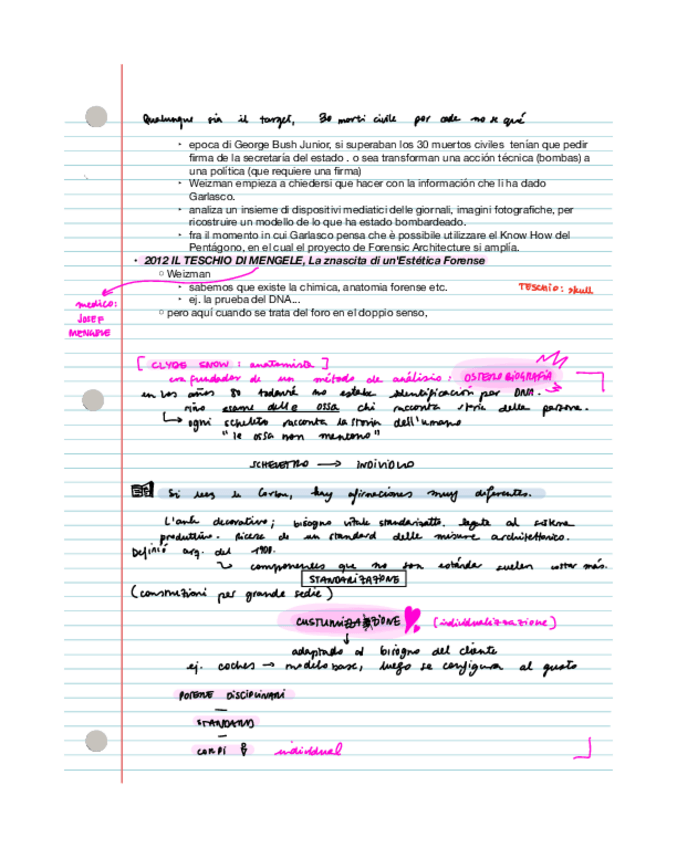 Qualunque sia il target, 30 morti civile por cada no se qué
‣ epoca di George Bush Junior, si superaban los 30 muertos civiles tenían que pedir
firma de la secretaría del estado . o sea transforman una acción técnica (bombas) a
una política (que requiere una firma)
‣ Weizman empieza a chiedersi que hacer con la información che li ha dado
Garlasco.
‣ analiza un insieme di dispositivi mediatici delle giornali, imagini fotografiche, per
ricostruire un modello de lo que ha estado bombardeado.
‣ fra il momento in cui Garlasco pensa che è possibile utilizzare el Know How del
Pentágono, en el cual el proyecto de Forensic Architecture si amplía.
• 2012 IL TESCHIO DI MENGELE, La znascita di un'Estética Forense
○ Weizman
‣ sabemos que existe la chimica, anatomia forense etc.
TESCHIO: skull
‣ ej. la prueba del DNA...
medico:
JOSEF
MENGELE
○ pero aquí cuando se trata del foro en el doppio senso,
[ CLYDE SNOW : anatomista ]
co fundador de un método de análisis: OSTEOBIOGRAFIA
en los años 80 todavía no estaba identificación por DNA.
esame delle ossa chi racconta storia della persona.
↳ ogni scheletro racconta la storia dell'umano
"le ossa non mentono"
SCHELETRO → INDIVIDUO
Si lees le Corbu, hay afirmaciones muy diferentes.
L'arte decorativo; bisogno vitale standarizatto. legate al sistema
produttivo. Ricerca di un standard delle misure architettonico.
Definió arq. del 1900.
↳ componentes que no son estándar suelen costar más.
STANDARIZAZIONE
(construzioni per grande sedie)
CUSTUMIZAZIONE (individualizzazione)
adaptado al bisogno del cliente
ej. coches → modelo base, luego se configura al gusto
POTERE DISCIPLINARI
STANDARD
CORPI & individual